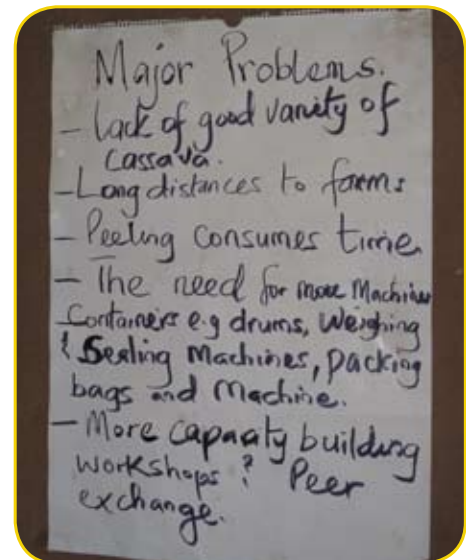 Major Problems.
- Lack of good variety of
Cassava.
- Long distances to farms
- Peeling consumes time
- The need for more Machines
Containers e.g drums, Weighing
& Sealing Machines, packing
bags and Machine.
- More capacity building
workshops & Peer
exchange.